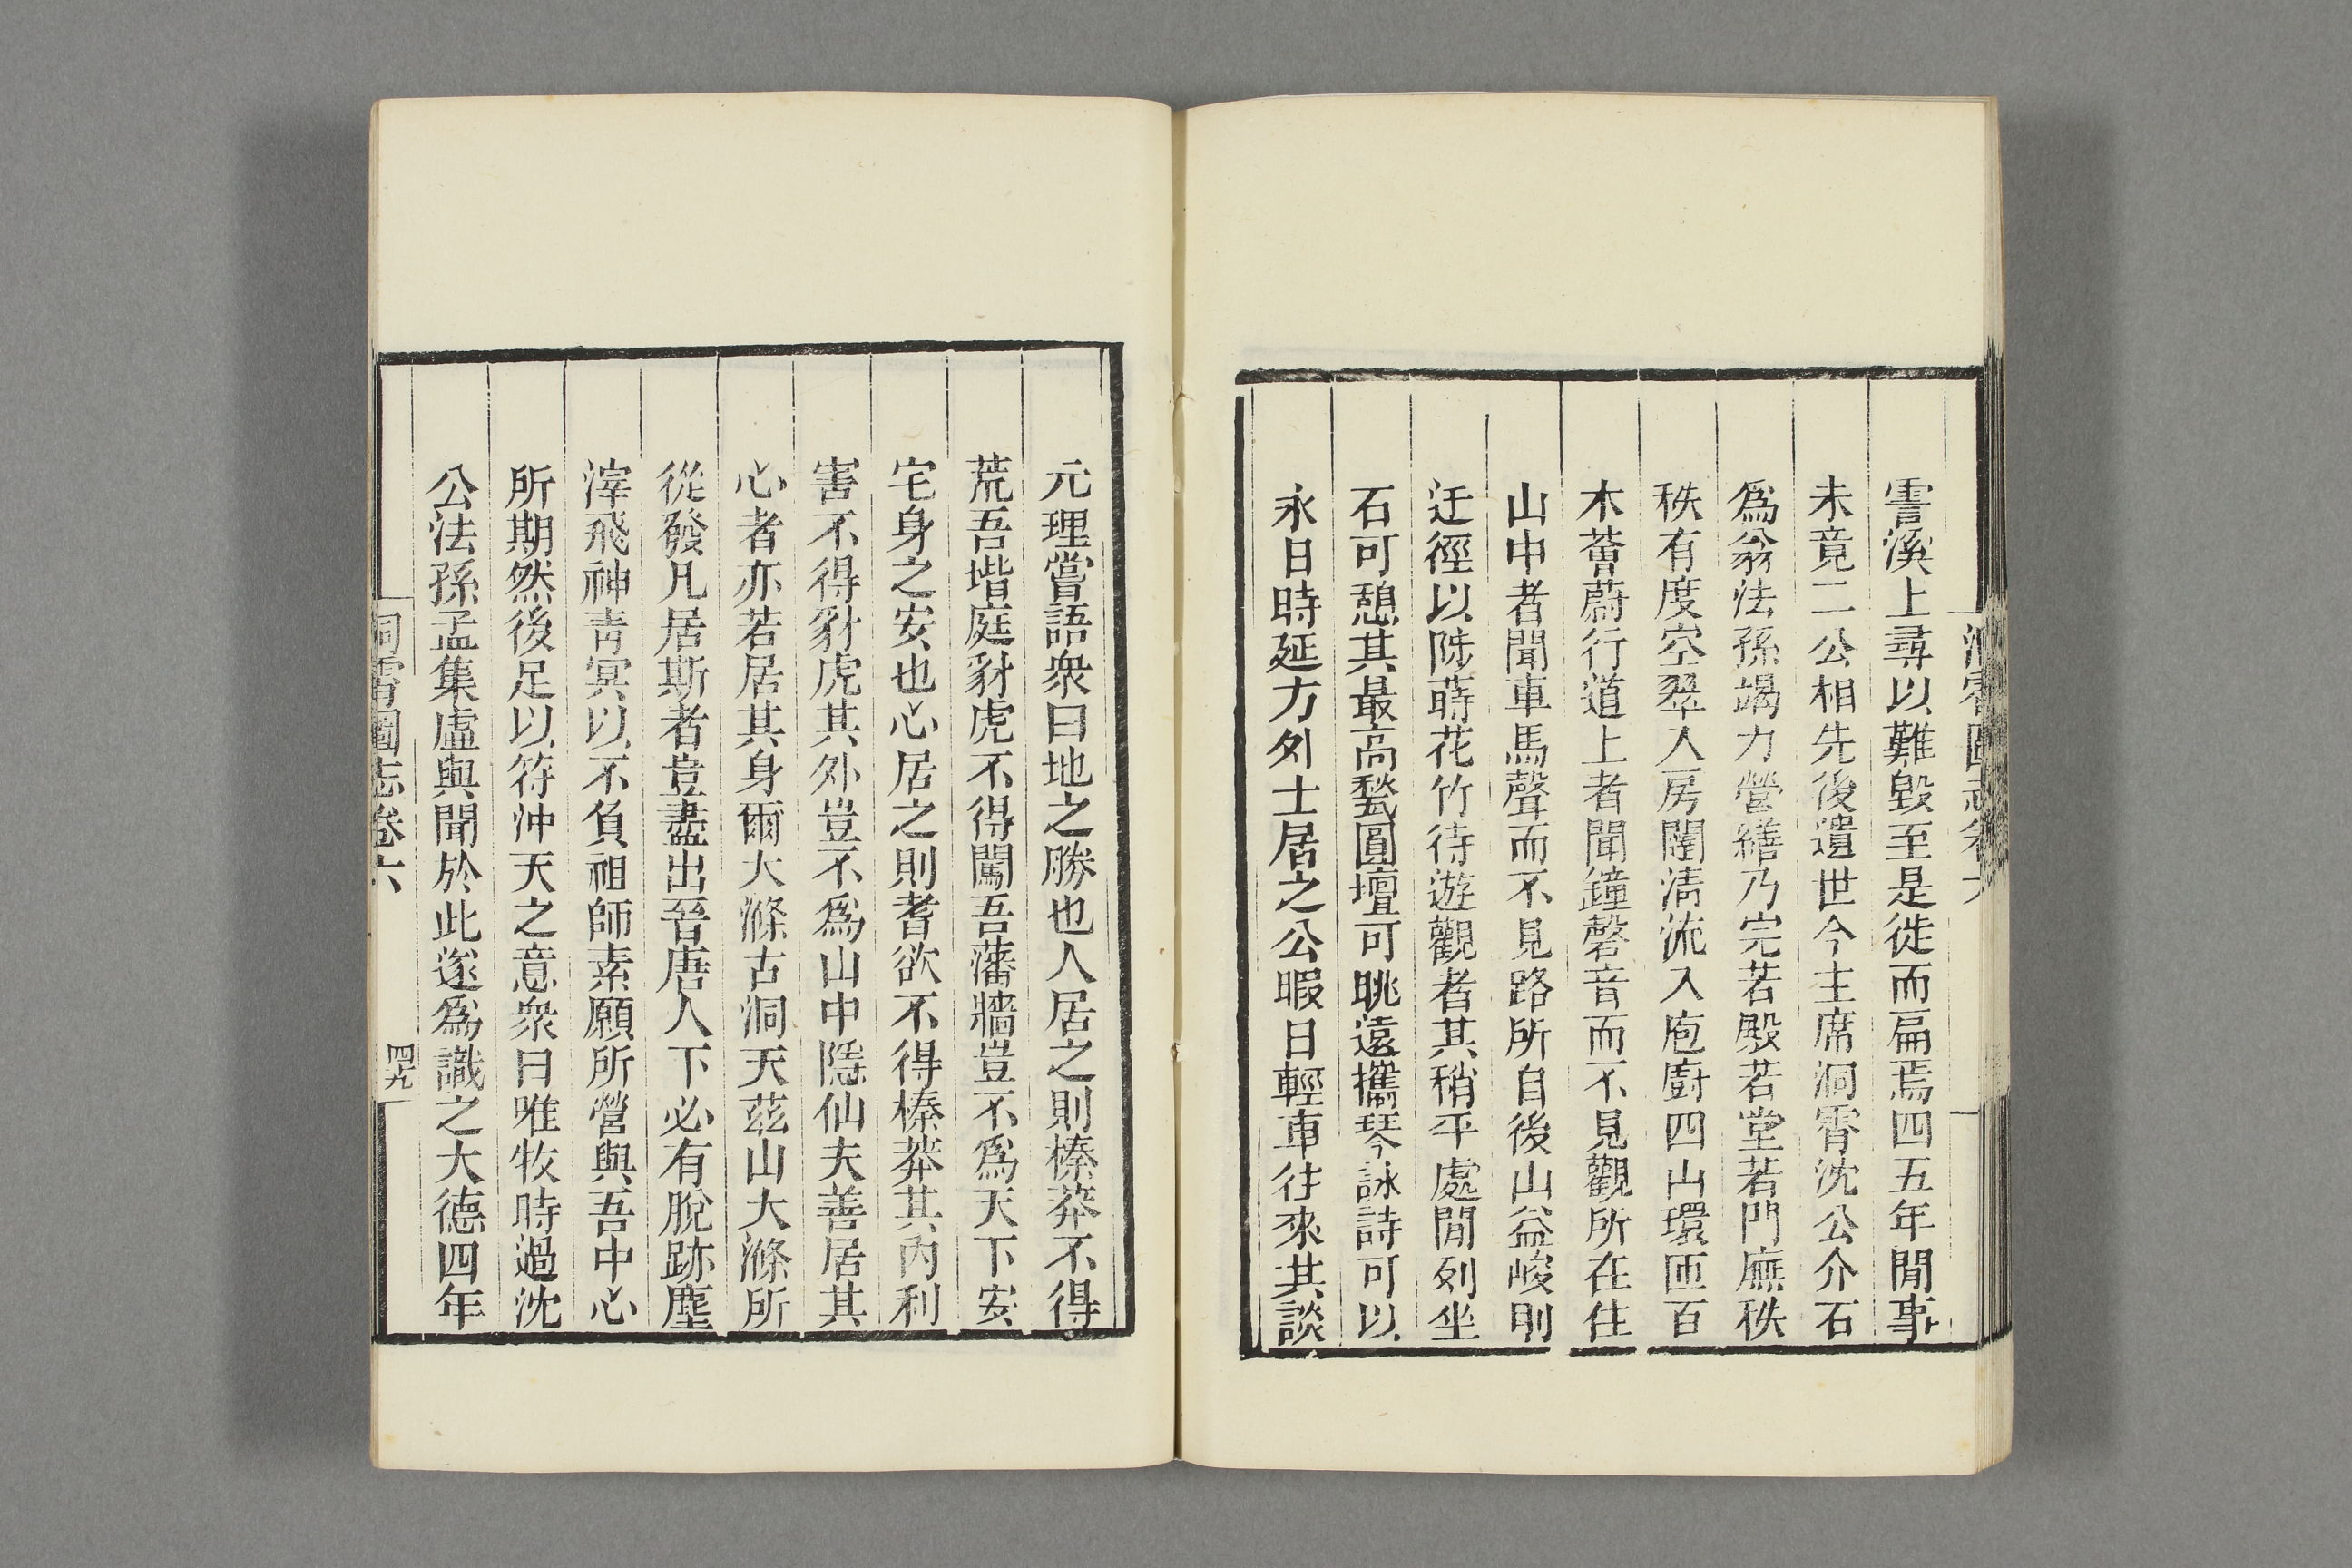 霅溪上尋以難毀至是徙而扁焉四五年閒事
未竟二公相先後遺世今主席洞霄沈公介石
爲翁法孫竭力營繕乃完若殿若堂若門廡秩
秩有度空翠入房闥淸流入庖廚四山環匝百
木薈蔚行道上者聞鐘磬音而不見觀所在住
山中者聞車馬聲而不見路所自後山益峻則
迂徑以陟蒔花竹待遊觀者其稍平處閒列坐
石可憩其最高甃圓壇可眺遠攜琴詠詩可以
永日時延方外士居之公暇日輕車往來其談
元理嘗語衆曰地之勝也人居之則榛莽不得
荒吾堦庭豺虎不得闖吾藩牆豈不爲天下安
宅身之安也心居之則耆欲不得榛莽其內利
害不得豺虎其外豈不爲山中隱仙夫善居其
心者亦若居其身爾大滌古洞天茲山大滌所
從發凡居斯者豈盡出晉唐人下必有脫跡塵
滓飛神靑冥以不負祖師素願所營與吾中心
所期然後足以符沖天之意衆曰唯牧時過沈
公法孫孟集虛與聞於此遂爲識之大德四年
洞霄圖志卷六
四九